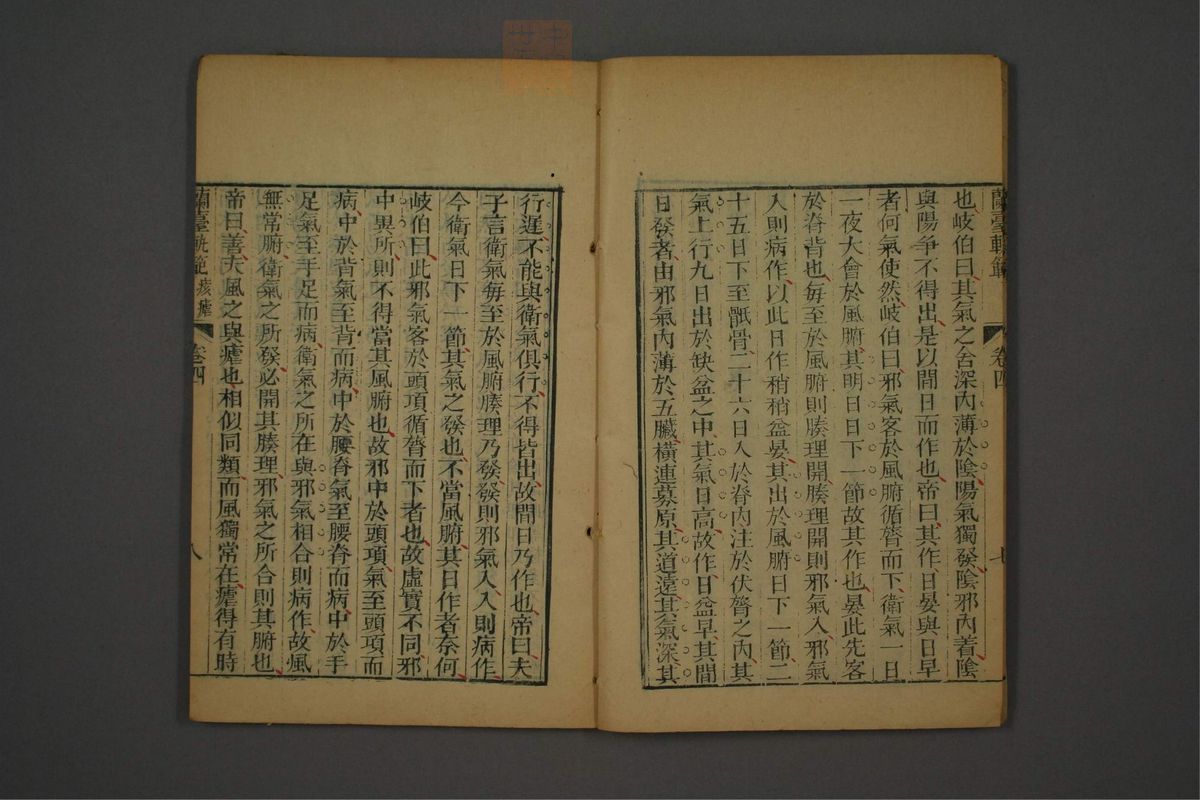 蘭臺軌範 卷四 七
也岐伯曰其氣之舍深內薄於陰陽氣獨發陰邪內着陰
與陽爭不得出是以間日而作也帝曰其作日晏與日早
者何氣使然岐伯曰邪氣客於風腑循膂而下衛氣一日
一夜大會於風腑其明日日下一節故其作也晏此先客
於脊背也每至於風腑則腠理開腠理開則邪氣入邪氣
入則病作以此日作稍稍益晏其出於風腑日下一節二
十五日下至骶骨二十六日入於脊內注於伏膂之內其
氣上行九日出於缺盆之中其氣日高故作日益早其間
日發者由邪氣內薄於五臟橫連募原其道遠其氣深其
行遲不能與衛氣俱行不得皆出故間日乃作也帝曰夫
子言衛氣每至於風腑腠理乃發發則邪氣入入則病作
今衛氣日下一節其氣之發也不當風腑其日作者奈何
岐伯曰此邪氣客於頭項循膂而下者也故虛實不同邪
中異所則不得當其風腑也故邪中於頭項氣至頭項而
病中於背氣至背而病中於腰脊氣至腰脊而病中於手
足氣至手足而病衛氣之所在與邪氣相合則病作故風
無常腑衛氣之所發必開其腠理邪氣之所合則其腑也
帝曰善夫風之與瘧也相似同類而風獨常在瘧得有時
蘭臺軌範 痎瘧 卷四 八